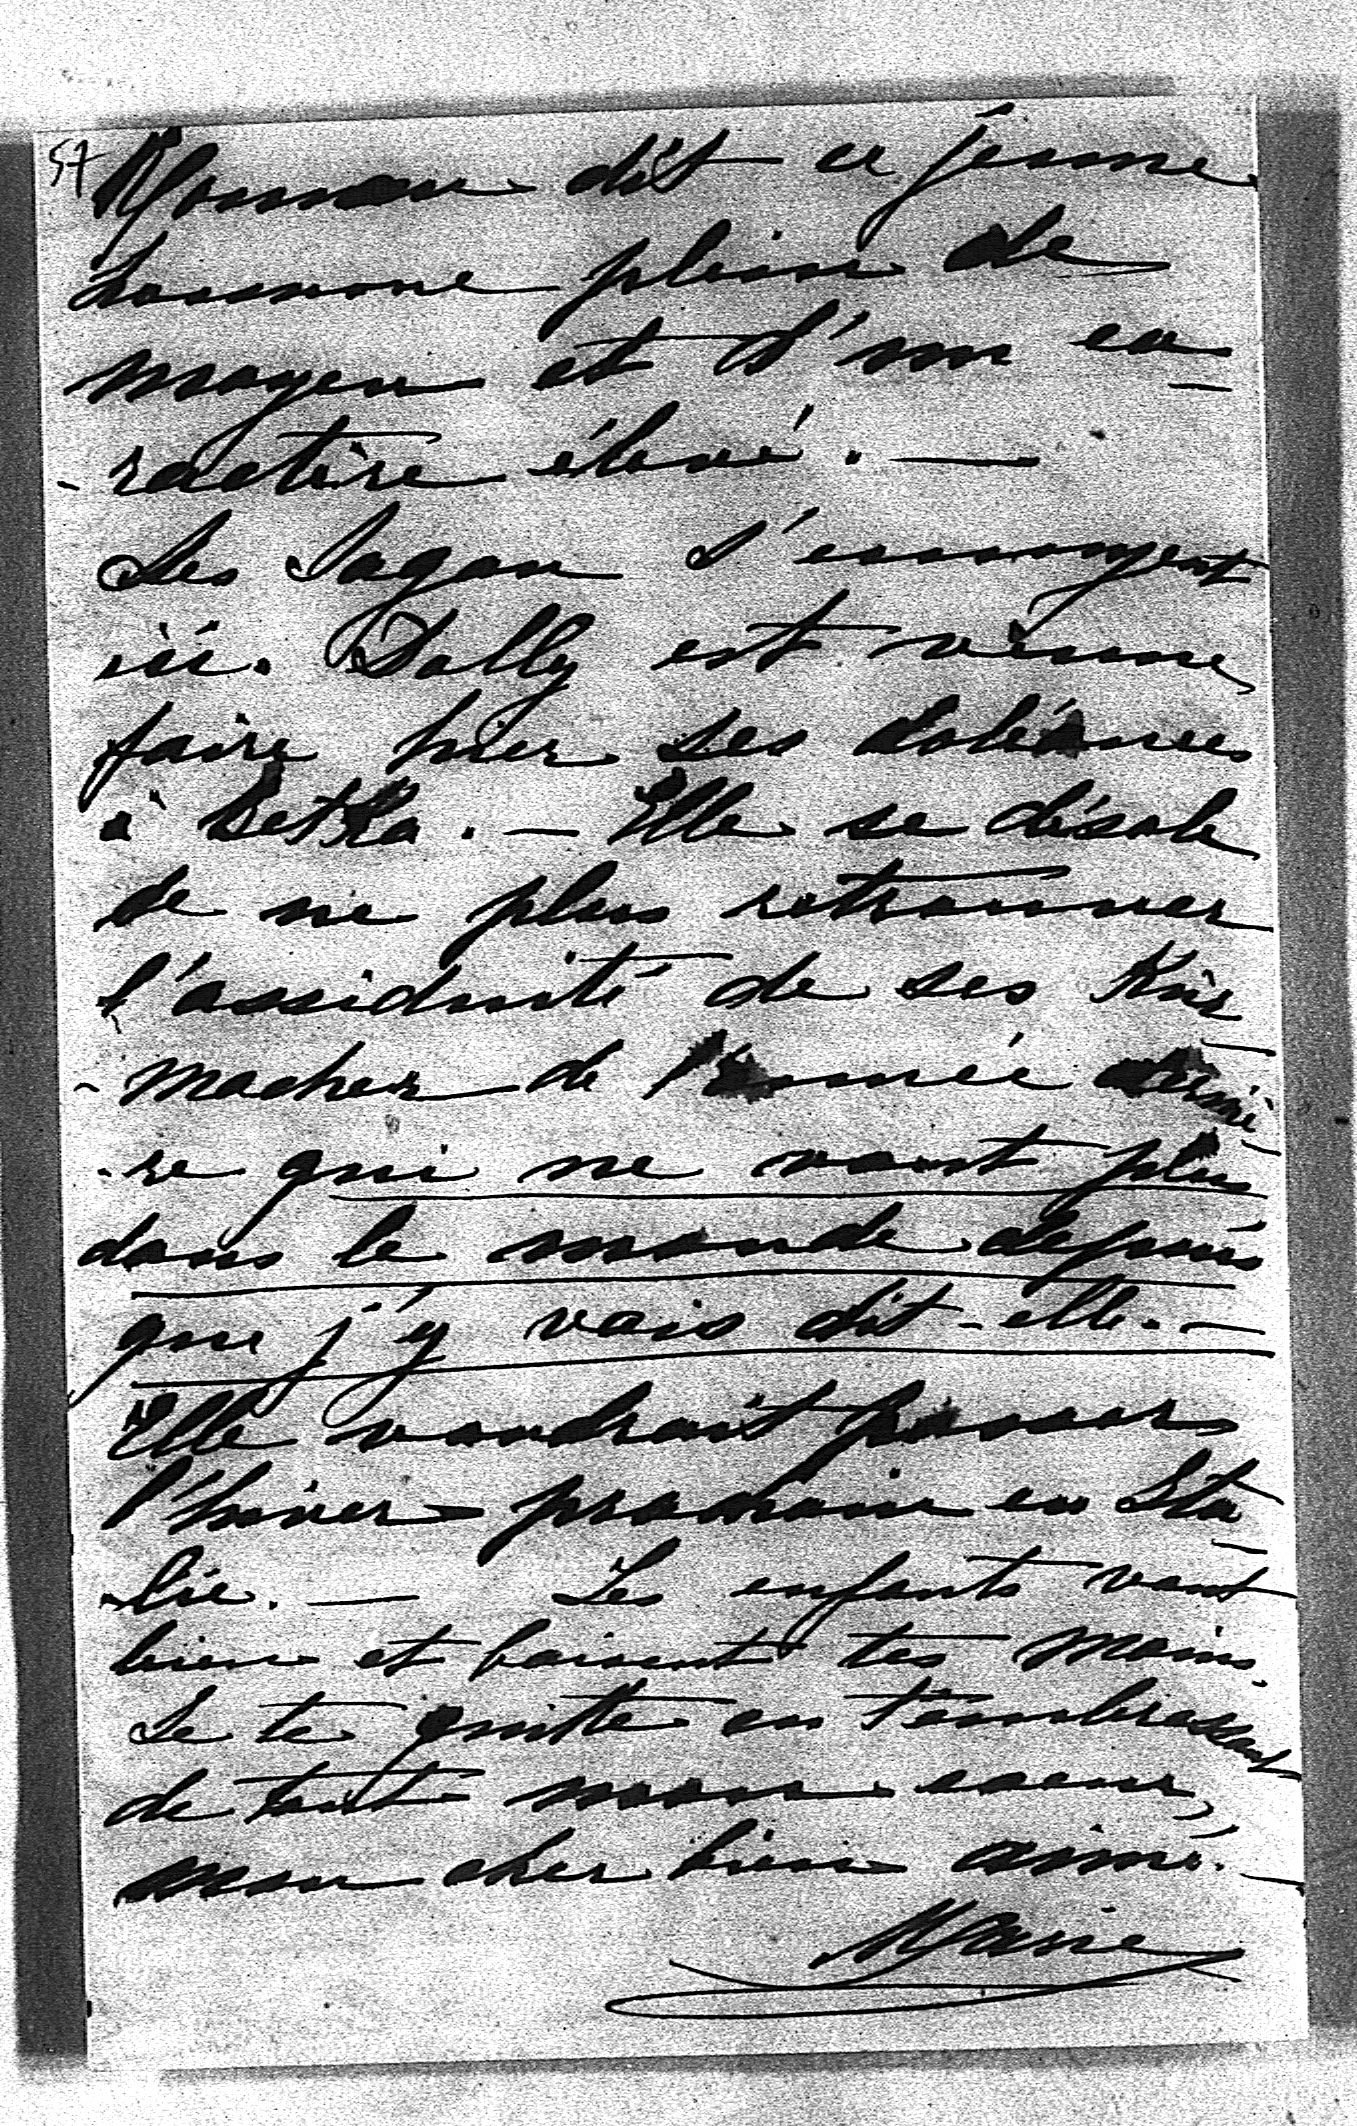 57
Maman dit ce jeune
homme plein de
moyen et d'un ca-
-ractère élevé. —
Les Sagan s'ennuyent
ici. Dolly est venue
faire hier ses doléances
à Betka. — Elle se désole
de ne plus retrouver
l'assiduité de ses Kur-
-macher de l'année derniè-
-re qui ne vont plus
dans le monde depuis
que j'y vais dit-elle. —
Elle voudrait passer
l'hiver prochain en Ita-
-lie. — Les enfants vont
bien et baisent tes mains.
Je te quitte en t'embrassant
de tout mon coeur,
mon cher bien aimé. —
Marie